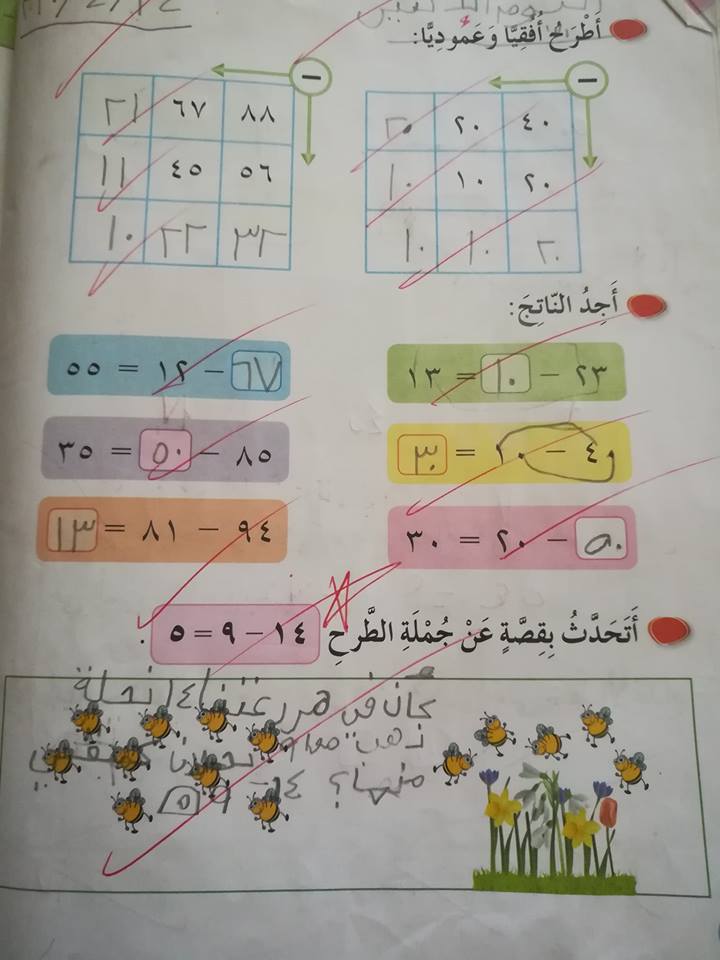 أَطْرَحُ أُفُقِيًّا وَعَمُودِيًّا:
−
٤٠ ٢٠ ٢٠
٢٠ ١٠ ١٠
٢٠ ١٠ ١٠
−
٨٨ ٦٧ ٢١
٥٦ ٤٥ ١١
٣٢ ٢٢ ١٠
أَجِدُ النّاتِجَ:
٢٣ − ١٠ = ١٣
٦٧ − ١٢ = ٥٥
٤٠ − ١٠ = ٣٠
٨٥ − ٥٠ = ٣٥
٥٠ − ٢٠ = ٣٠
٩٤ − ٨١ = ١٣
أَتَحَدَّثُ بِقِصَّةٍ عَنْ جُمْلَةِ الطَّرحِ ١٤ − ٩ = ٥ .
كان في مزرعتنا ١٤ نحلة
ذهب منها ٩ نحلات كم بقي
منها؟ ١٤ − ٩ ٥